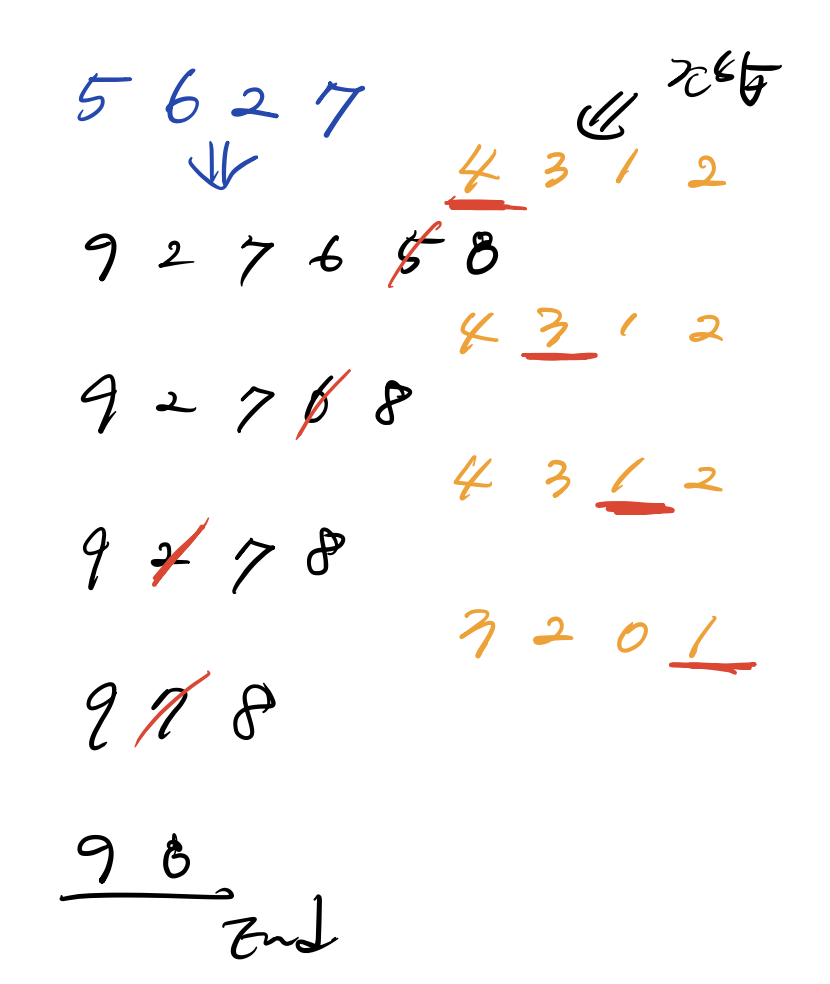 5 6 2 7
4 3 1 2
9 2 7 6 5 8
4 3 1 2
9 2 7 6 8
4 3 1 2
9 2 7 8
3 2 0 1
9 7 8
9 8
End